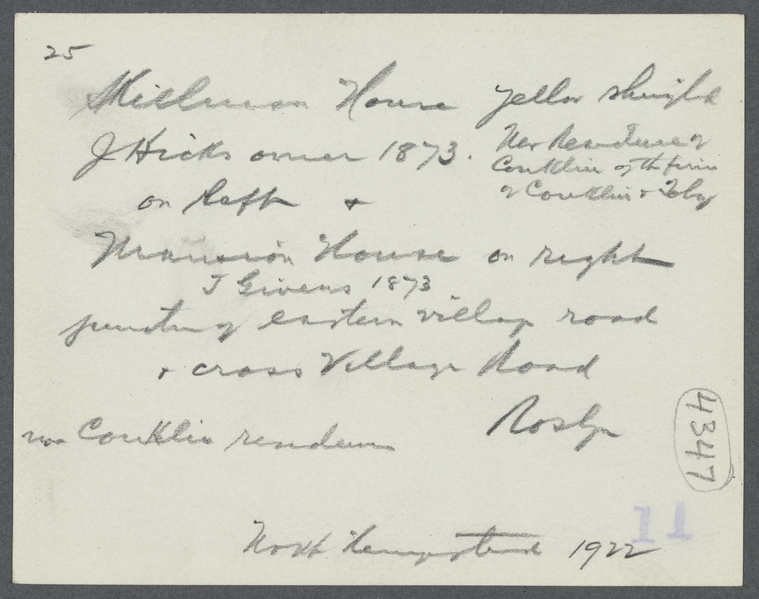 25
Skillman House yellow shingled
J Hicks owner 1873.
Now Residence of
Conklin of the firm
of Conklin & Toby
on left &
Mansion House on right
J Givens 1873
junction of eastern village road
& cross Village Road
Roslyn
now Conklin residence
4347
11
North Hempstead 1922